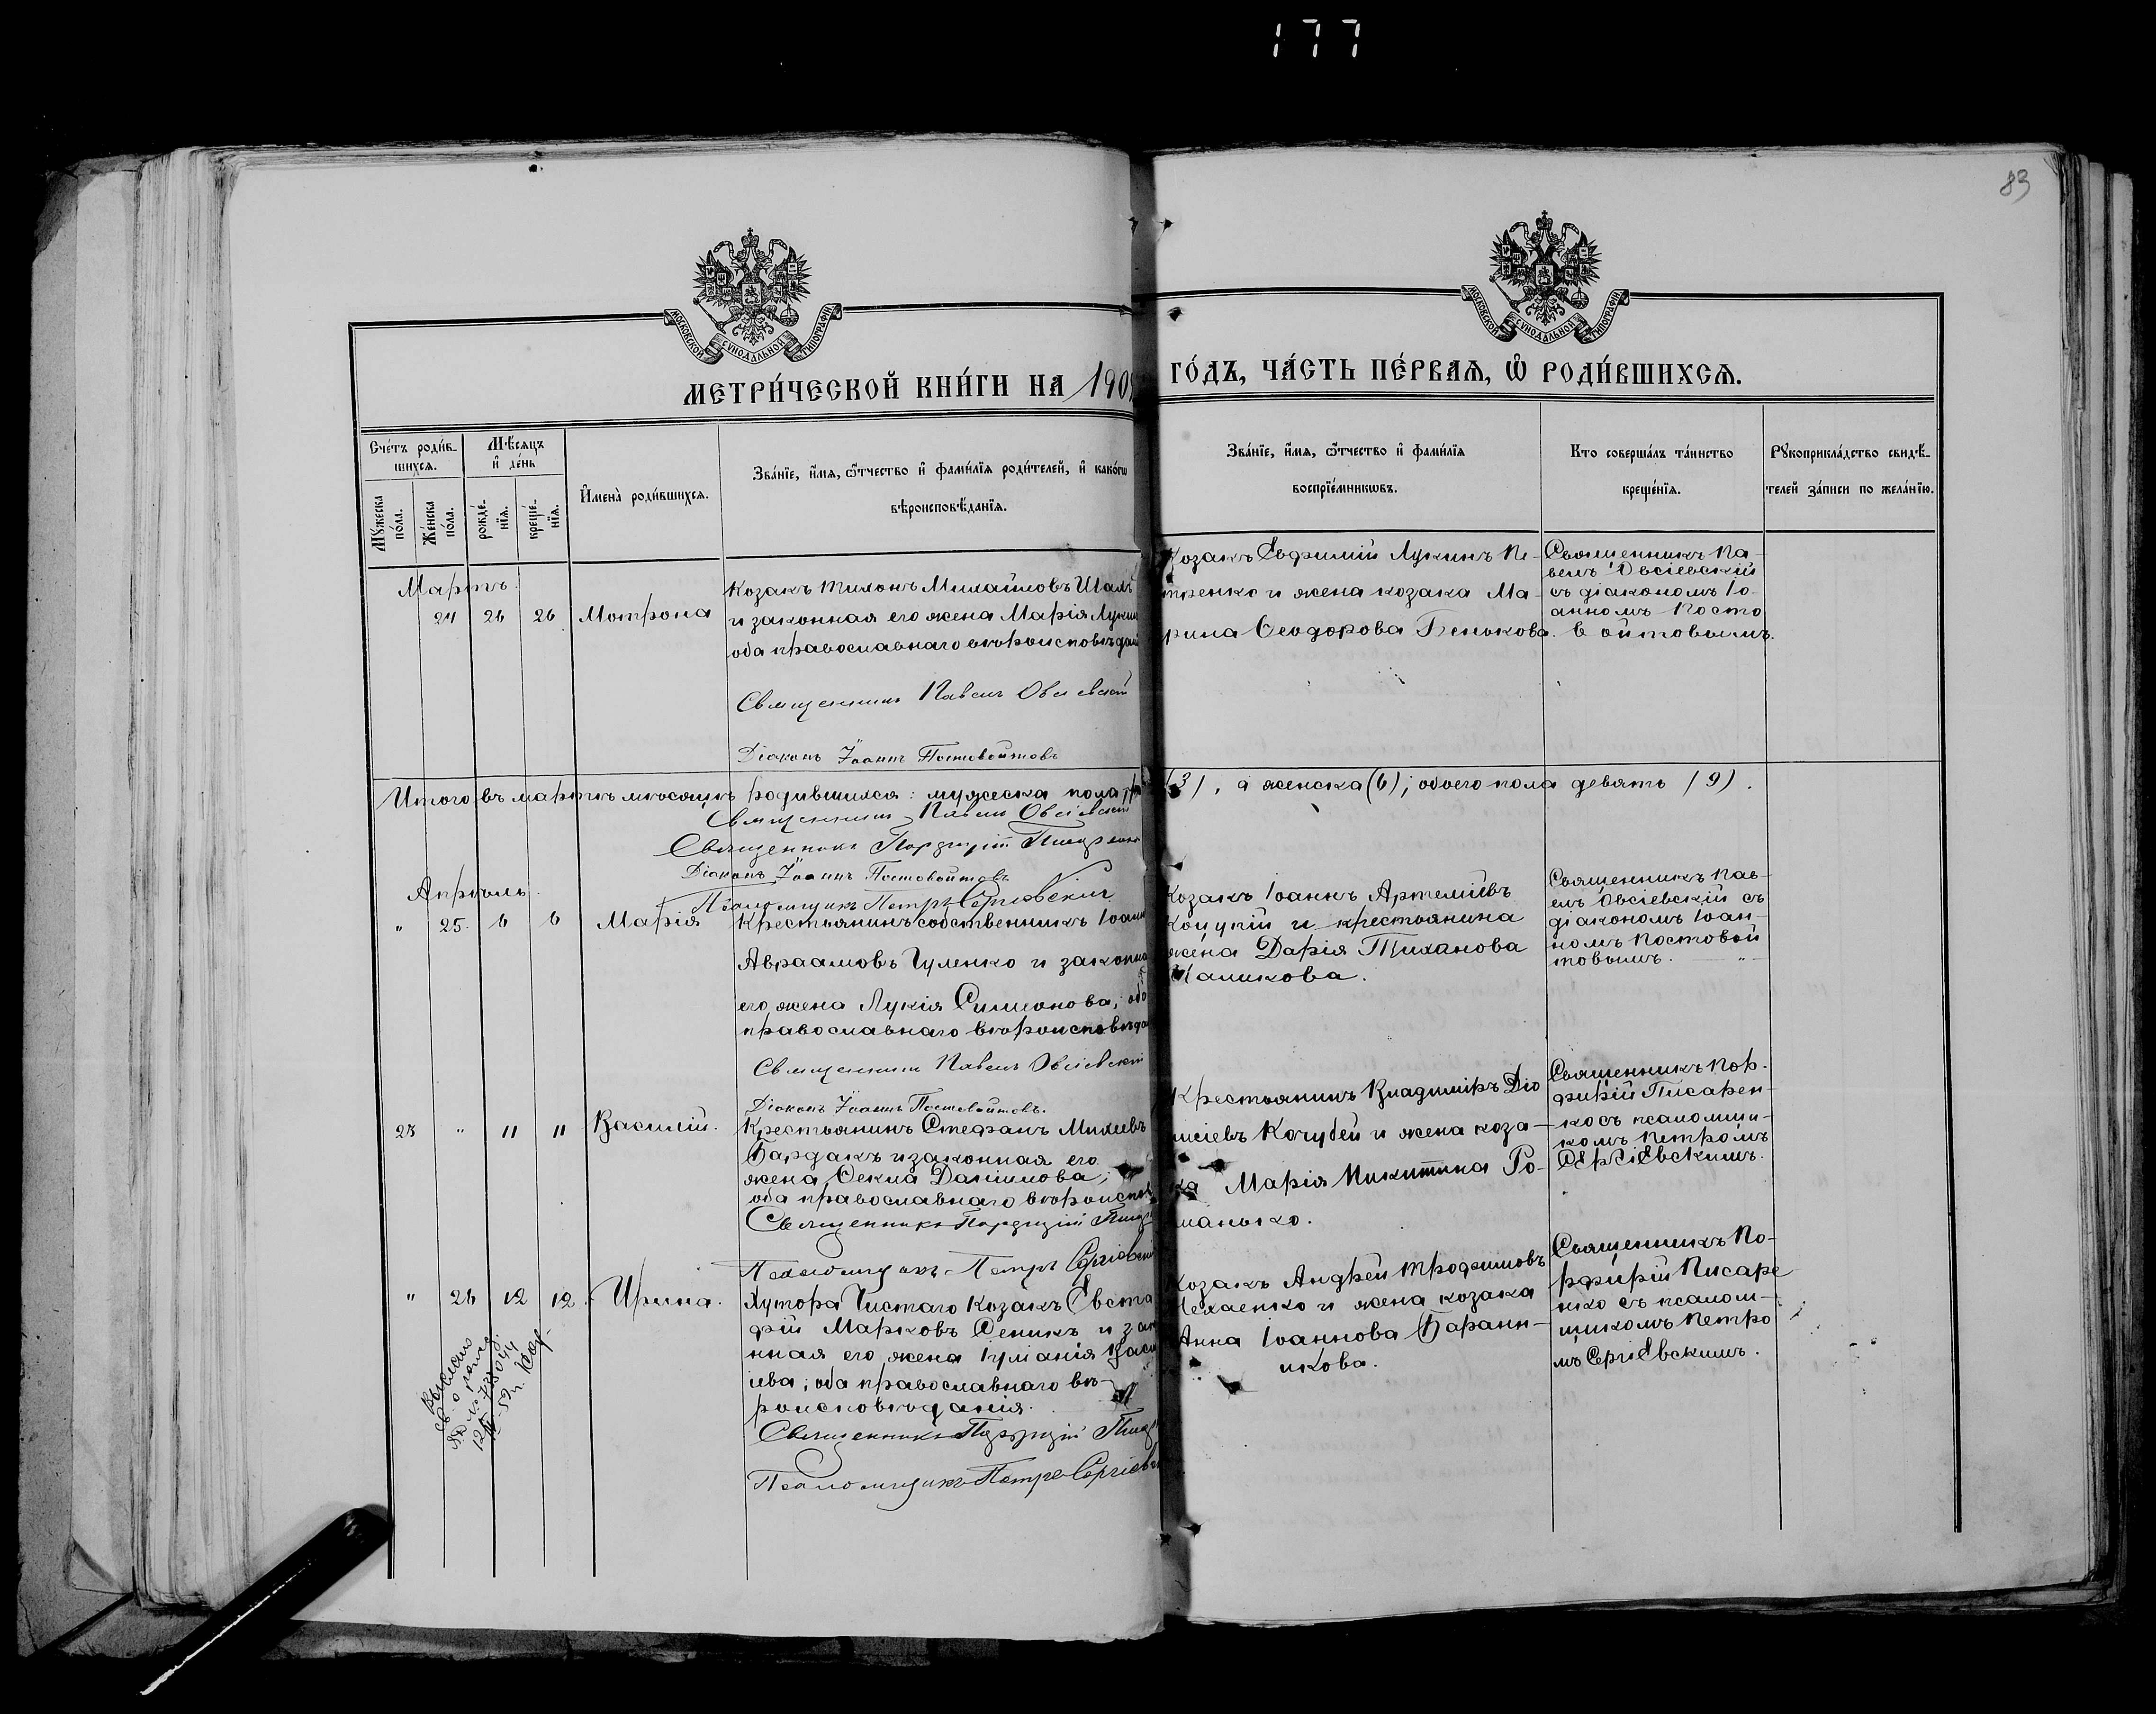 177
83
МОСКОВСКОЙ СУНОДАЛЬНОЙ ТИПОГРАФІИ
МОСКОВСКОЙ СУНОДАЛЬНОЙ ТИПОГРАФІИ
МЕТРИ́ЧЕСКОЙ КНИ́ГИ НА 190
ГО́ДЪ, ЧА́СТЬ ПЕ́РВАѦ, Ѽ РОДИ́ВШИХСѦ.
Сче́тъ роди́в-
шихся.
Мѣ́сяцъ
и҆ де́нь
Мꙋ́жеска
по́ла.
Же́нска
по́ла.
рожде́-
нїя.
креще́-
нїя.
И҆мена̀ роди́вшихся.
Зва́нїе, и҆́мя, ѻ҆́тчество и҆ фами́лїя роди́телей, и҆ како́гѡ
вѣроисповѣ́данїя.
Зва́нїе, и҆́мя, ѻ҆́тчество и҆ фами́лїя
воспрїе́мникѡвъ.
Кто соверша́лъ та́инство
креще́нїя.
Рꙋкоприкла́дство свидѣ́-
телей за́писи по жела́нїю.
Мартъ.
24 26 26 Мотрона
Козакъ Тихонъ Михайловъ
и законная его жена Марія
оба православнаго
Священникъ Павелъ Овсіевскій
Діаконъ Іоаннъ Постовойтовъ
Козакъ Евфимій Лукинъ Пе-
тренко и жена козака Ма-
рина Ѳеодорова Бенюкова.
Священникъ Па-
велъ Овсіевскій
съ діакономъ Іо-
анномъ Посто
войтовымъ.
Итого въ мартѣ мѣсяцѣ родившихся: мужеска пола
(3), а женска (6); обоего пола девять (9).
Священникъ Павелъ Овсіевскій
Священникъ Порфирій
Діаконъ Іоаннъ Постовойтовъ
Псаломщикъ Петръ Сергіевскій
Апрѣль.
" 25. 6 6 Марія
Крестьянинъ собственникъ
Авраамовъ Гуленко и
его жена Лукія Симеонова;
православнаго
Священникъ Павелъ Овсіевскій
Діаконъ Іоаннъ Постовойтовъ.
Козакъ Іоаннъ Артеміевъ
Коцупій и крестьянина
жена Дарія Тиханова
Священникъ Пав-
елъ Овсіевскій съ
діакономъ Іоан-
номъ Постовой
товымъ. "
" 11 11 Василій.
Крестьянинъ Стефанъ Михеевъ
Бардакъ и законная его
жена Ѳекла Даніилова;
оба православнаго
Священникъ Порфирій
Псаломщикъ Петръ
Крестьянинъ Владиміръ Діо
нисіевъ Кочубей и жена коза-
ка Марія Никитина Ро-
манько.
Священникъ Пор-
фирій Писарен-
ко съ псаломщи-
комъ Петромъ
Сергіевскимъ.
" 26 12 12. Ирина.
Хутора Чистаго Козакъ
фій Марковъ Сеникъ и
нная его жена Іуліанія
іева; оба православнаго вѣ-
роисповѣданія.
Священникъ Порфирій
Псаломщикъ Петръ
Козакъ Андрей Трофимовъ
и жена козака
Анна Іоаннова Баранн-
икова.
Священникъ По-
рфирій Писаре
нко съ псалом-
щикомъ Петро
мъ Сергіевскимъ.